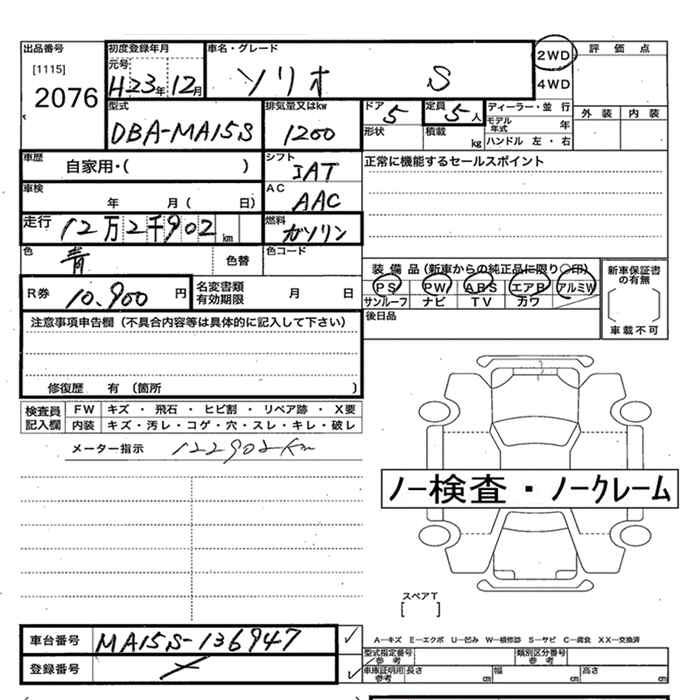 出品番号 初度登録年月 車名・グレード 2WD 評価点
[1115] 元号
2076 H23年12月 ソリオ S 4WD
型式 排気量又はkw ドア 定員 ディーラー・並行 外装 内装
DBA-MA15S 1200 5 5人 モデル年式 年
形状 積載 kg ハンドル 左・右
車歴 自家用・( ) シフト IAT 正常に機能するセールスポイント
車検 年 月( 日) AC AAC
走行 12万2千902km 燃料 ガソリン
色 青 色替 色コード
装備品(新車からの純正品に限り〇印) 新車保証書の有無
R券 10,900円 名変書類有効期限 月 日 PS PW ABS エアB アルミW
サンルーフ ナビ TV カワ
注意事項申告欄(不具合内容等は具体的に記入して下さい) 後日品 車載不可
修復歴 有 (箇所 )
検査員記入欄 FW キズ・飛石・ヒビ割・リペア跡・X要
内装 キズ・汚レ・コゲ・穴・スレ・キレ・破レ
メーター指示 122902Km
ノー検査・ノークレーム
スペアT
[ ]
車台番号 MA15S-136947 A-キズ E-エクボ U-凹み W-補修跡 S-サビ C-腐食 XX-交換済
型式指定番号 参考 類別区分番号 参考
登録番号 車庫証明用参考 長さ cm 幅 cm 高さ cm